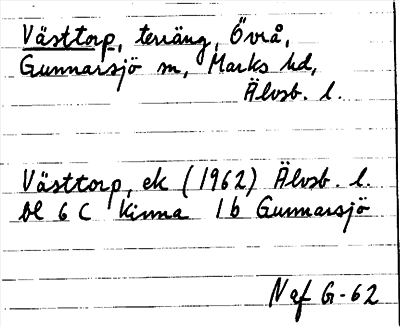 Västtorp, terräng, Övrå,
Gunnarsjö sn, Marks hd,
Älvsb. l.
Västtorp, ek (1962) Älvsb. l.
bl 6 C Kinna 1b Gunnarsjö
Naf G-62